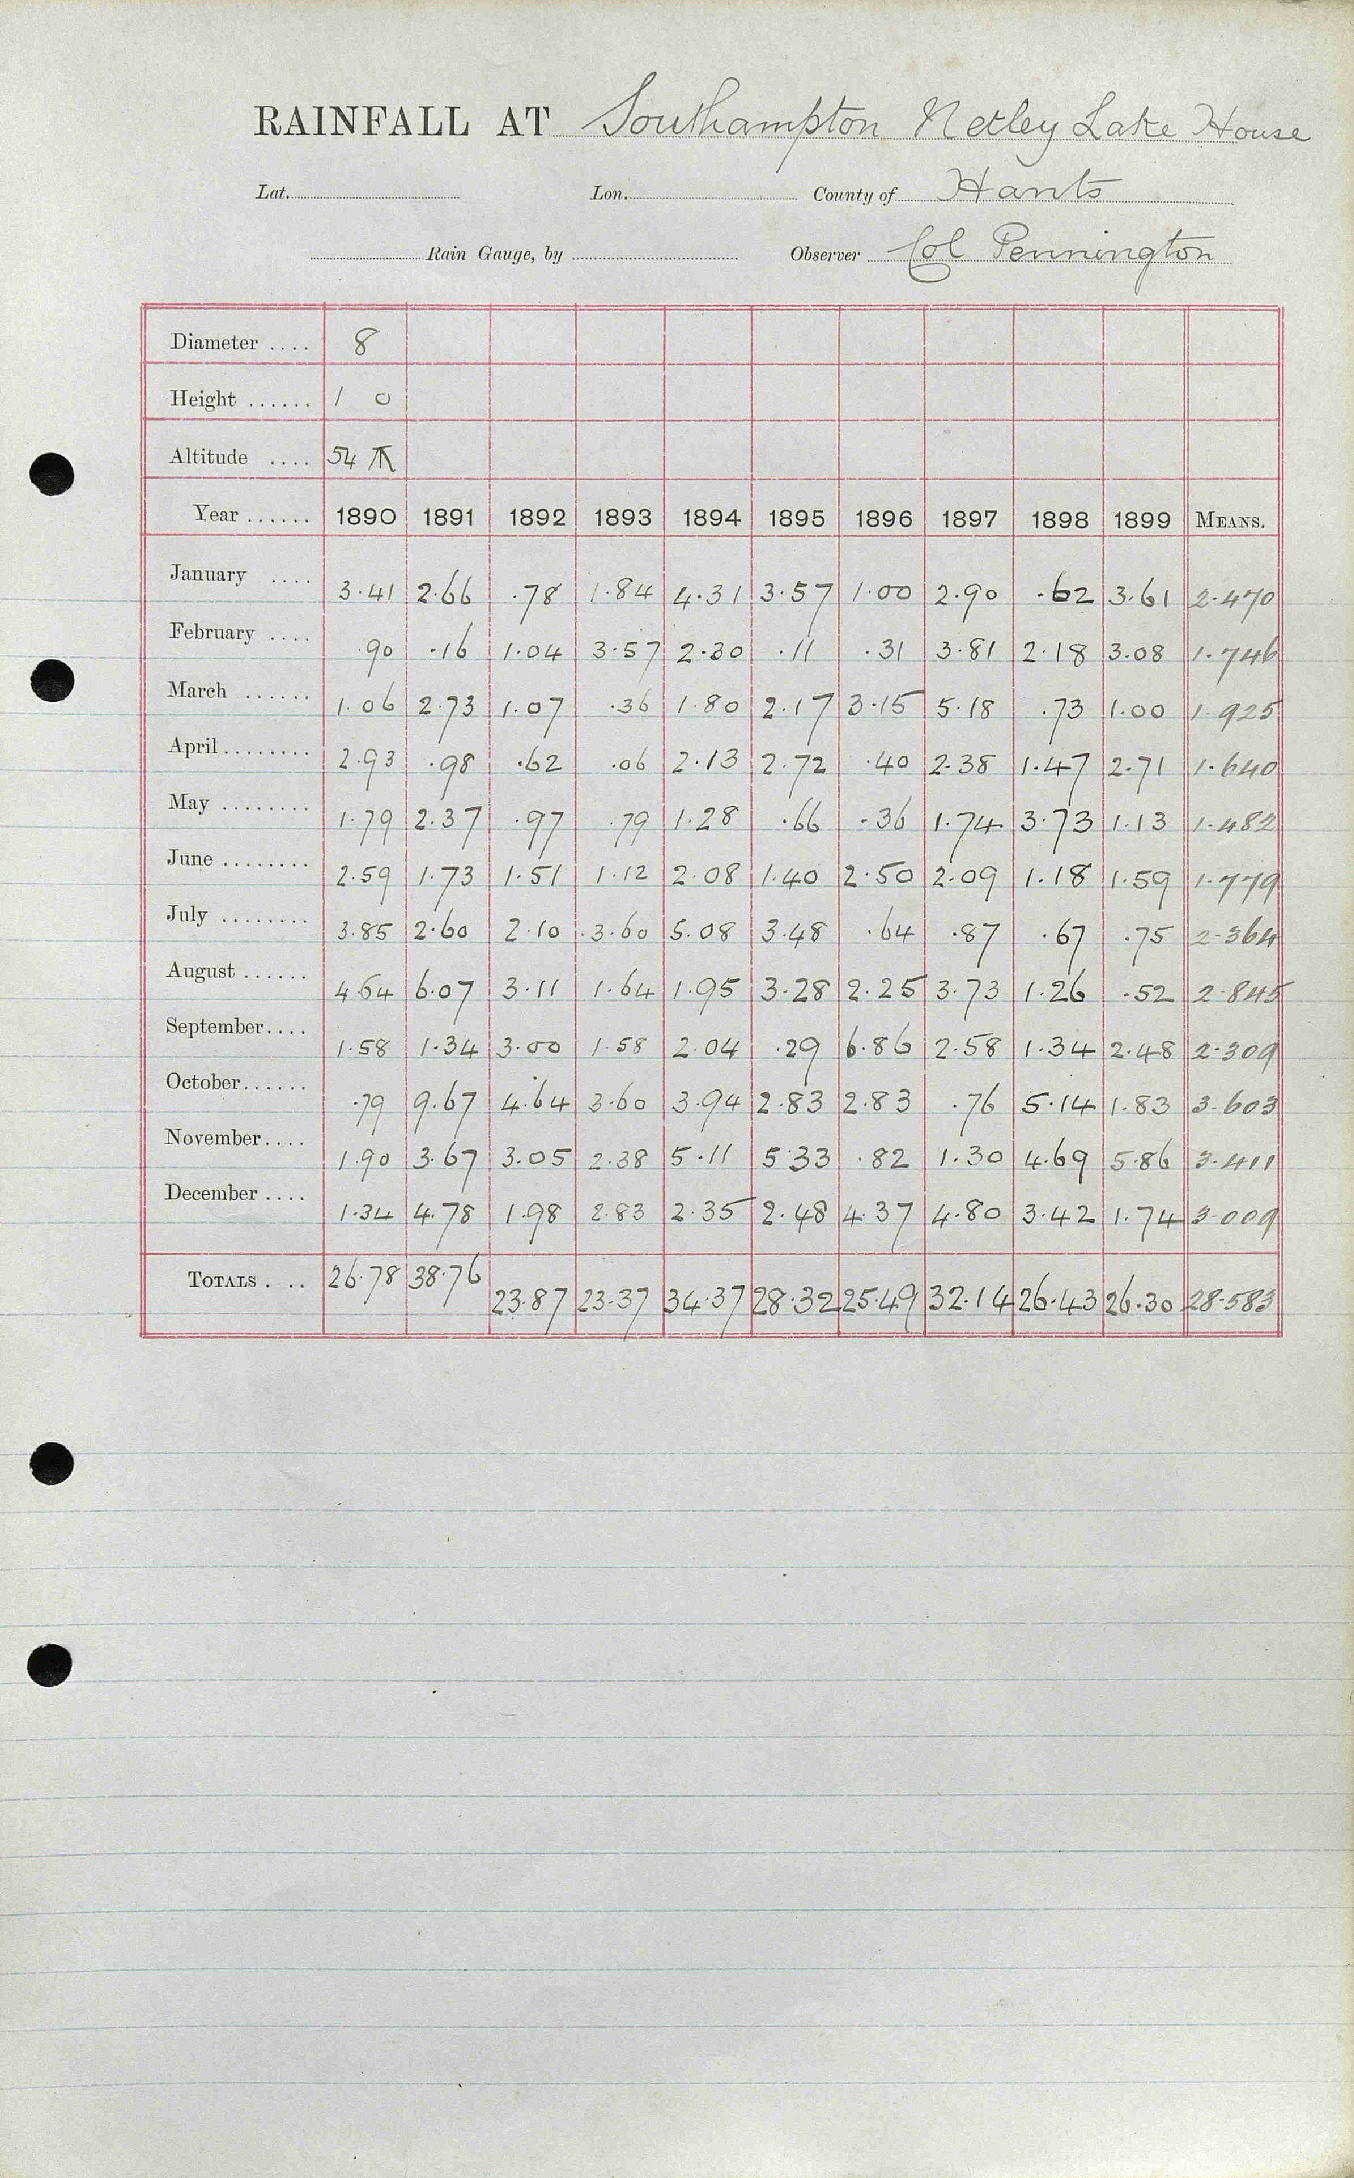 RAINFALL AT Southampton Netley Lake House
Lat. Lon. County of Hants
Rain Gauge, by Observer Col Pennington
Diameter .... 8
Height ...... 1 0
Altitude .... 54
Year ...... 1890 1891 1892 1893 1894 1895 1896 1897 1898 1899 MEANS.
January .... 3.41 2.66 .78 1.84 4.31 3.57 1.00 2.90 .62 3.61 2.470
February .... .90 .16 1.04 3.57 2.30 .11 .31 3.81 2.18 3.08 1.746
March ...... 1.06 2.73 1.07 .36 1.80 2.17 3.15 5.18 .73 1.00 1.925
April ........ 2.93 .98 .62 .06 2.13 2.72 .40 2.38 1.47 2.71 1.640
May ........ 1.79 2.37 .97 .79 1.28 .66 .36 1.74 3.73 1.13 1.482
June ........ 2.59 1.73 1.51 1.12 2.08 1.40 2.50 2.09 1.18 1.59 1.779
July ........ 3.85 2.60 2.10 3.60 5.08 3.48 .64 .87 .67 .75 2.364
August ...... 4.64 6.07 3.11 1.64 1.95 3.28 2.25 3.73 1.26 .52 2.845
September.... 1.58 1.34 3.00 1.58 2.04 .29 6.86 2.58 1.34 2.48 2.309
October...... .79 9.67 4.64 3.60 3.94 2.83 2.83 .76 5.14 1.83 3.603
November.... 1.90 3.67 3.05 2.38 5.11 5.33 .82 1.30 4.69 5.86 3.411
December .... 1.34 4.78 1.98 2.83 2.35 2.48 4.37 4.80 3.42 1.74 3.009
TOTALS . .. 26.78 38.76 23.87 23.37 34.37 28.32 25.49 32.14 26.43 26.30 28.583